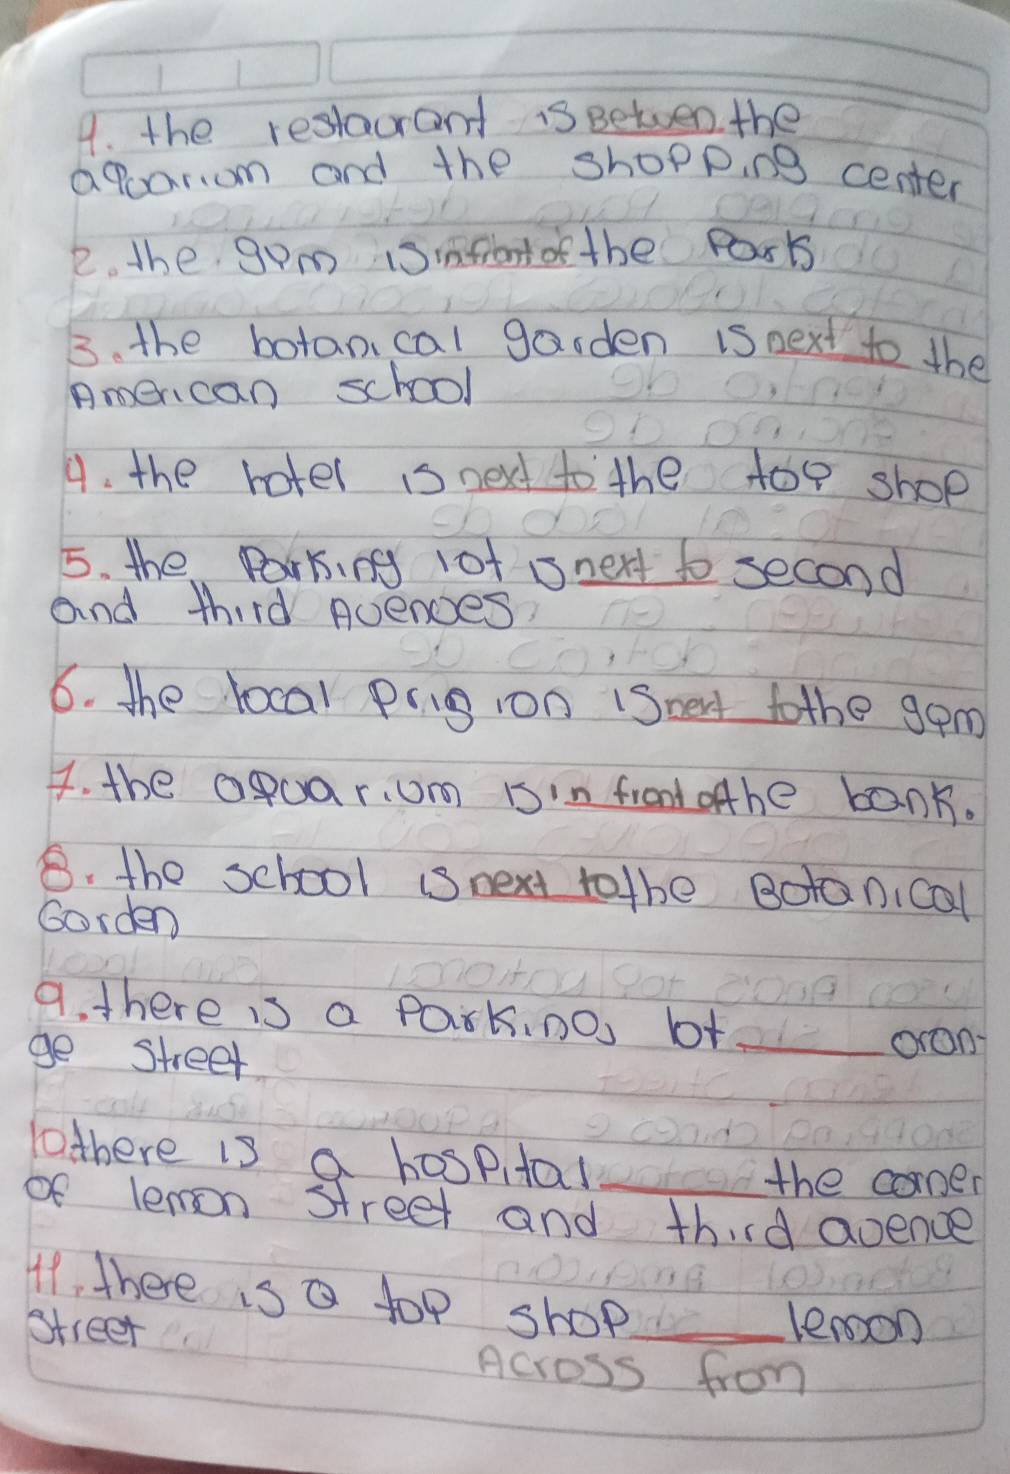 1. the restaurant is Betwen the
aquarium and the shopping center
2. the gym is in front of the Park
3. the botanical garden is next to the
American school
4. the hotel is next to the toy shop
5. the Parking lot is next to second
and third Avenues
6. the local Prigion is next to the gym
7. the aquarium is in front of the bank.
8. the school is next to the Botanical
Garden
9. there is a Parking lot _____ oran-
ge Street
10 there is a hospital _____ the corner
of lemon Street and third avenue
11. there is a toy shop _____ lemon
Street
Across from